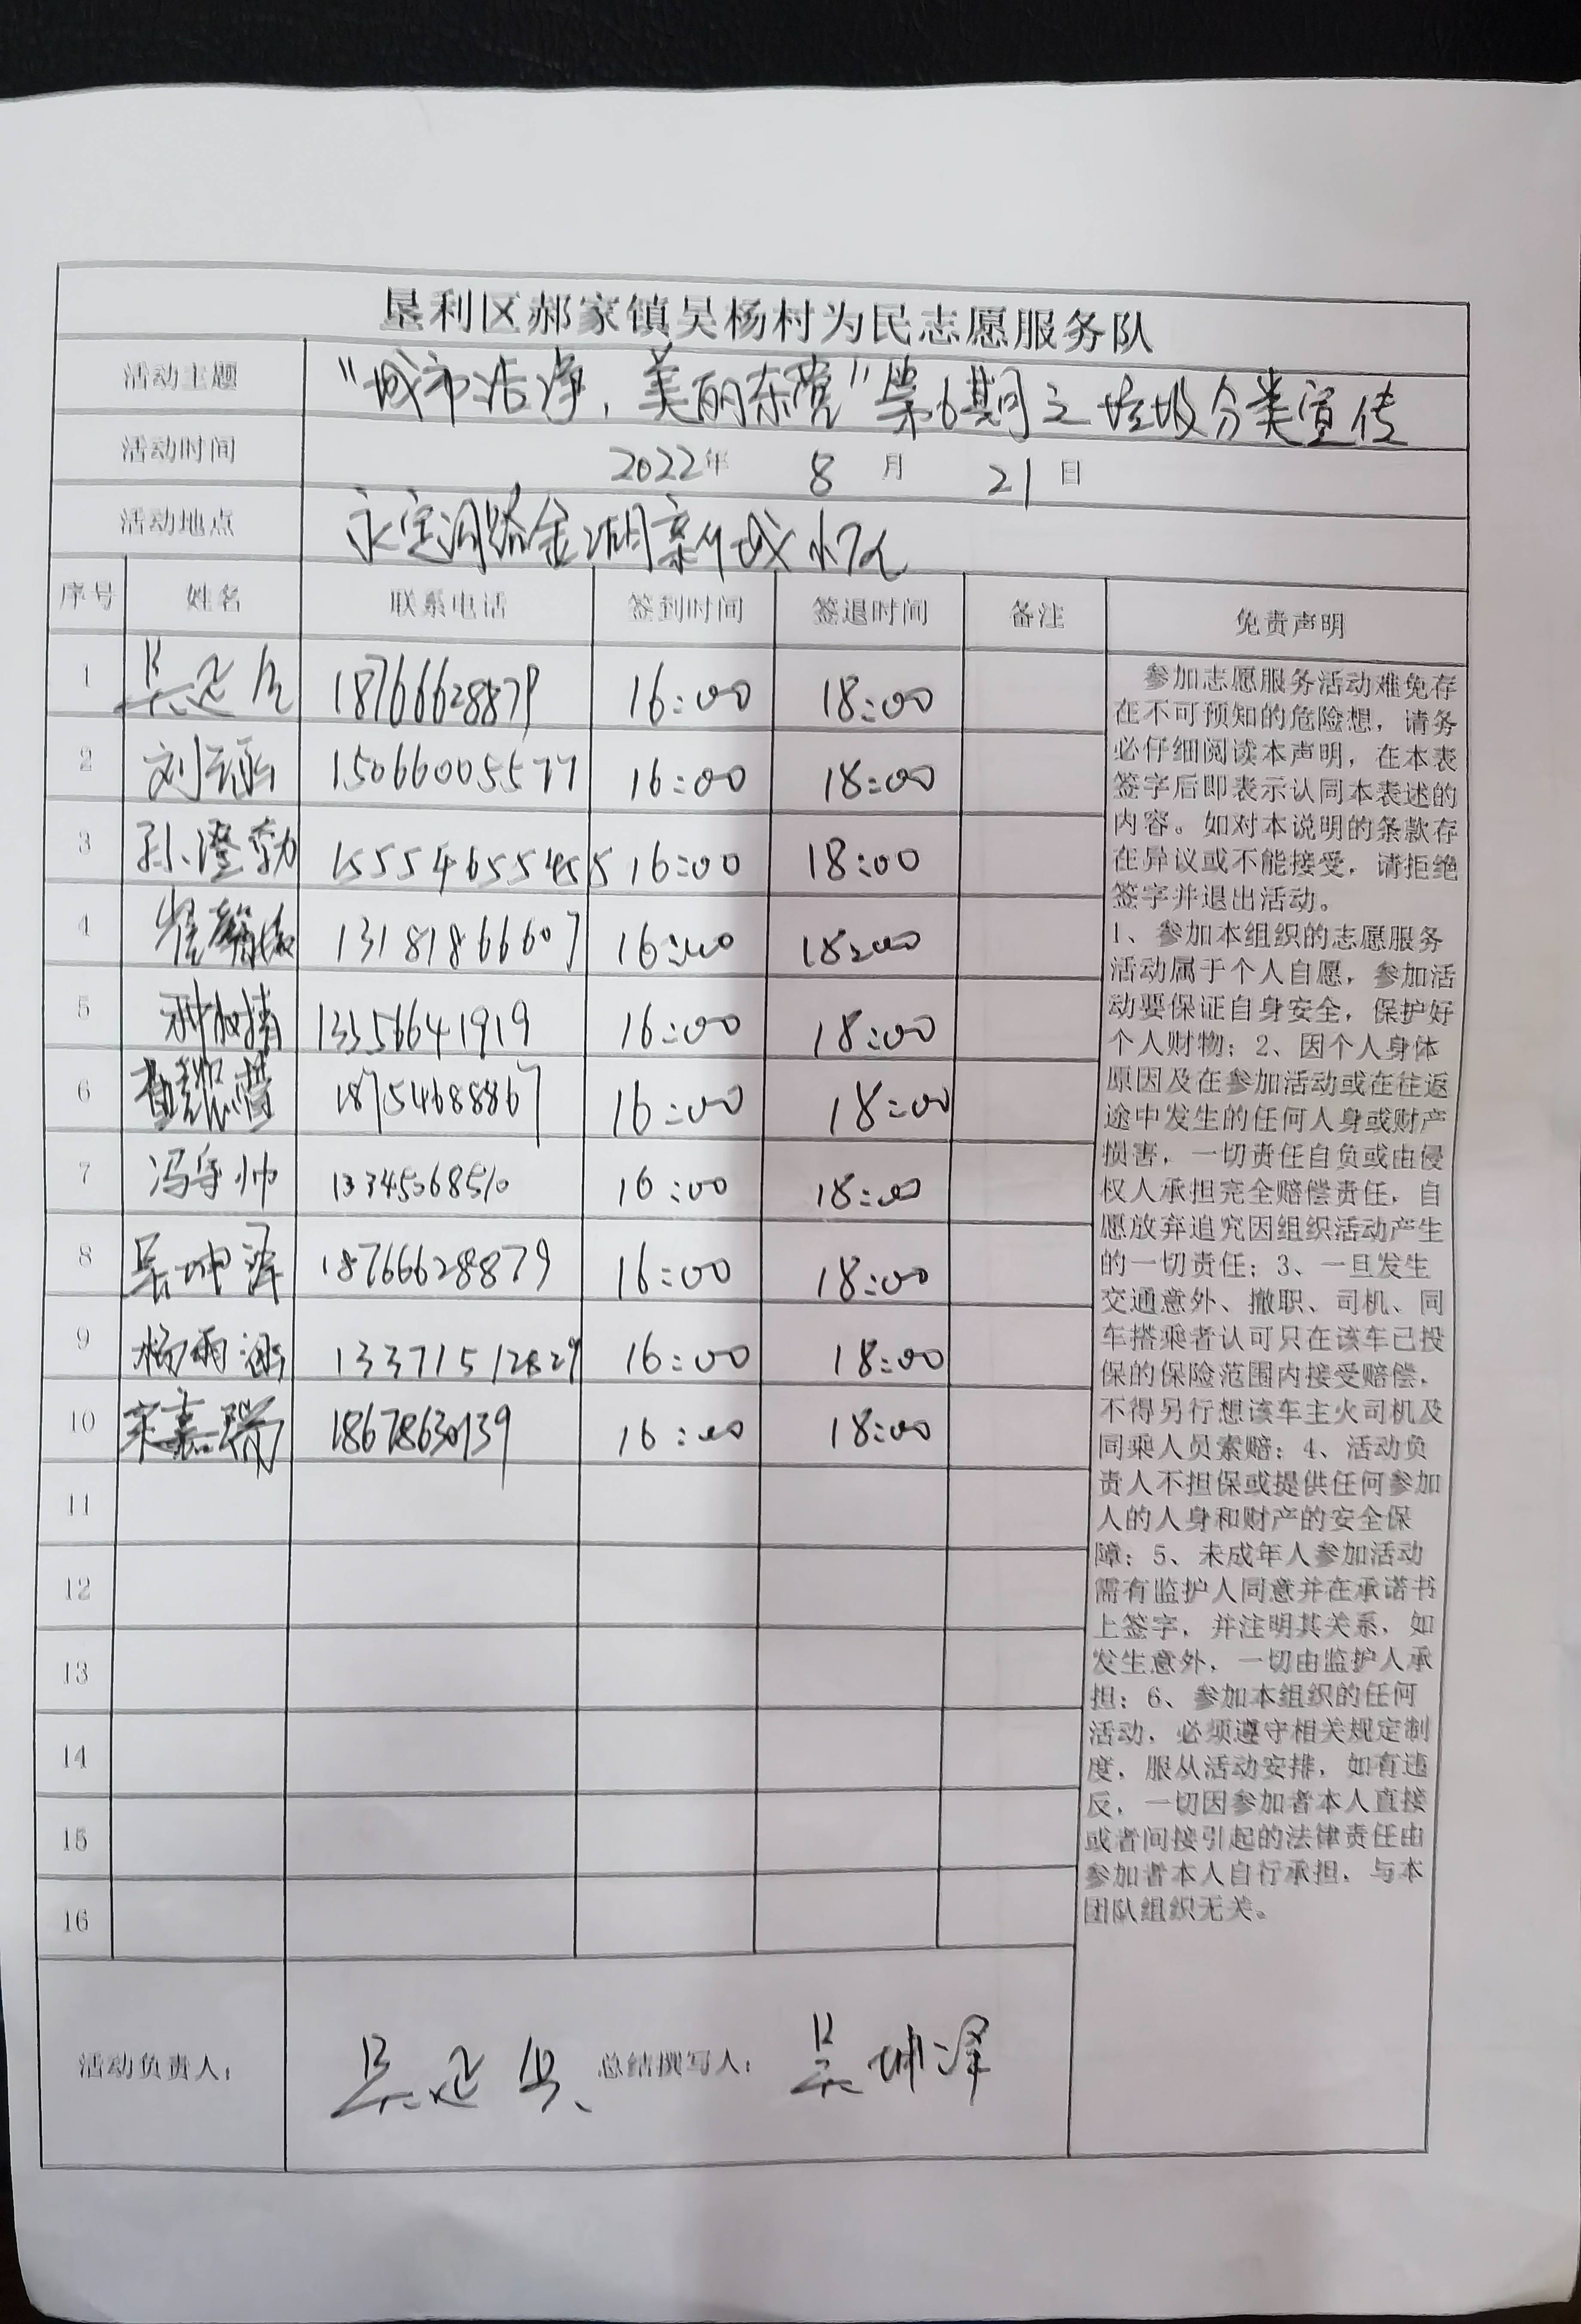 垦利区郝家镇吴杨村为民志愿服务队
活动主题 “城市洁净，美丽东营”第6期之垃圾分类宣传
活动时间 2022年 8 月 21 日
活动地点 永宁河路金湖新城小区
序号 姓名 联系电话 签到时间 签退时间 备注 免责声明
1 18766628879 16:00 18:00
2 15066005577 16:00 18:00
3 孙澄勃 16:00 18:00
4 13181866607 16:00 18:00
5 13356641919 16:00 18:00
6 18754688867 16:00 18:00
7 16:00 18:00
8 吴坤泽 18766628879 16:00 18:00
9 16:00 18:00
10 宋嘉瑞 18678630139 16:00 18:00
11
12
13
14
15
16
参加志愿服务活动难免存
在不可预知的危险想，请务
必仔细阅读本声明，在本表
签字后即表示认同本表述的
内容。如对本说明的条款存
在异议或不能接受，请拒绝
签字并退出活动。
1、参加本组织的志愿服务
活动属于个人自愿，参加活
动要保证自身安全，保护好
个人财物；2、因个人身体
原因及在参加活动或在往返
途中发生的任何人身或财产
损害，一切责任自负或由侵
权人承担完全赔偿责任，自
愿放弃追究因组织活动产生
的一切责任；3、一旦发生
交通意外、撤职、司机、同
车搭乘者认可只在该车已投
保的保险范围内接受赔偿，
不得另行想该车主火司机及
同乘人员索赔；4、活动负
责人不担保或提供任何参加
人的人身和财产的安全保
障；5、未成年人参加活动
需有监护人同意并在承诺书
上签字，并注明其关系，如
发生意外，一切由监护人承
担；6、参加本组织的任何
活动，必须遵守相关规定制
度，服从活动安排，如有违
反，一切因参加者本人直接
或者间接引起的法律责任由
参加者本人自行承担，与本
团队组织无关。
活动负责人： 总结撰写人： 吴坤泽